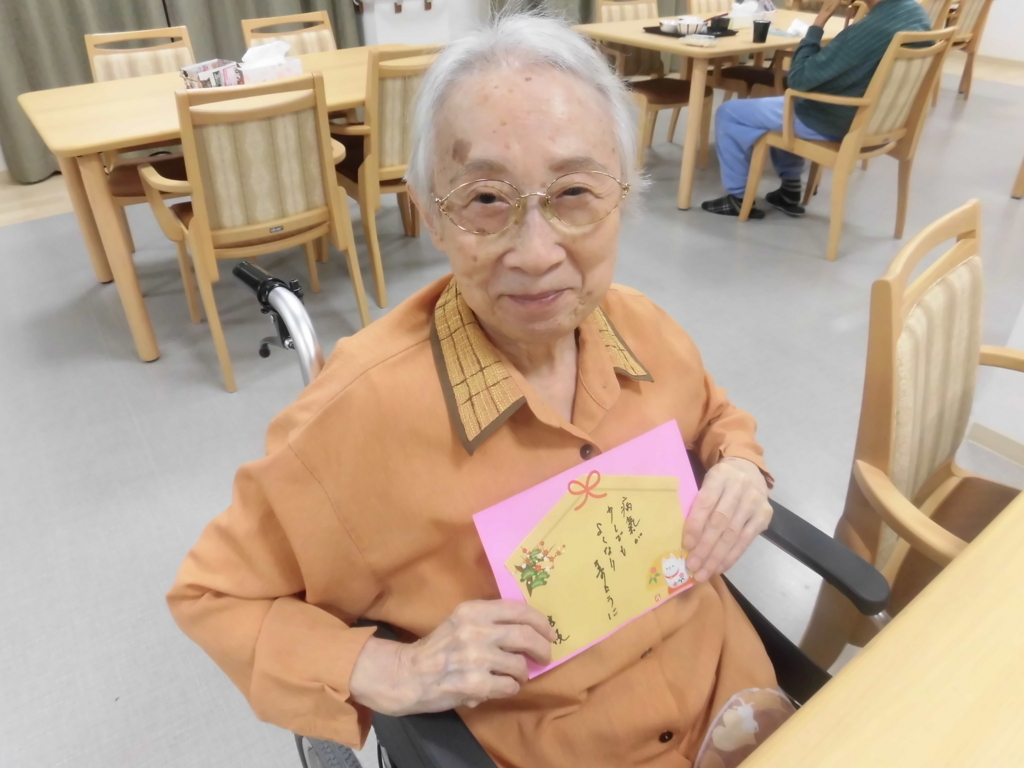 病氣が
少しでも
よくなります
ように